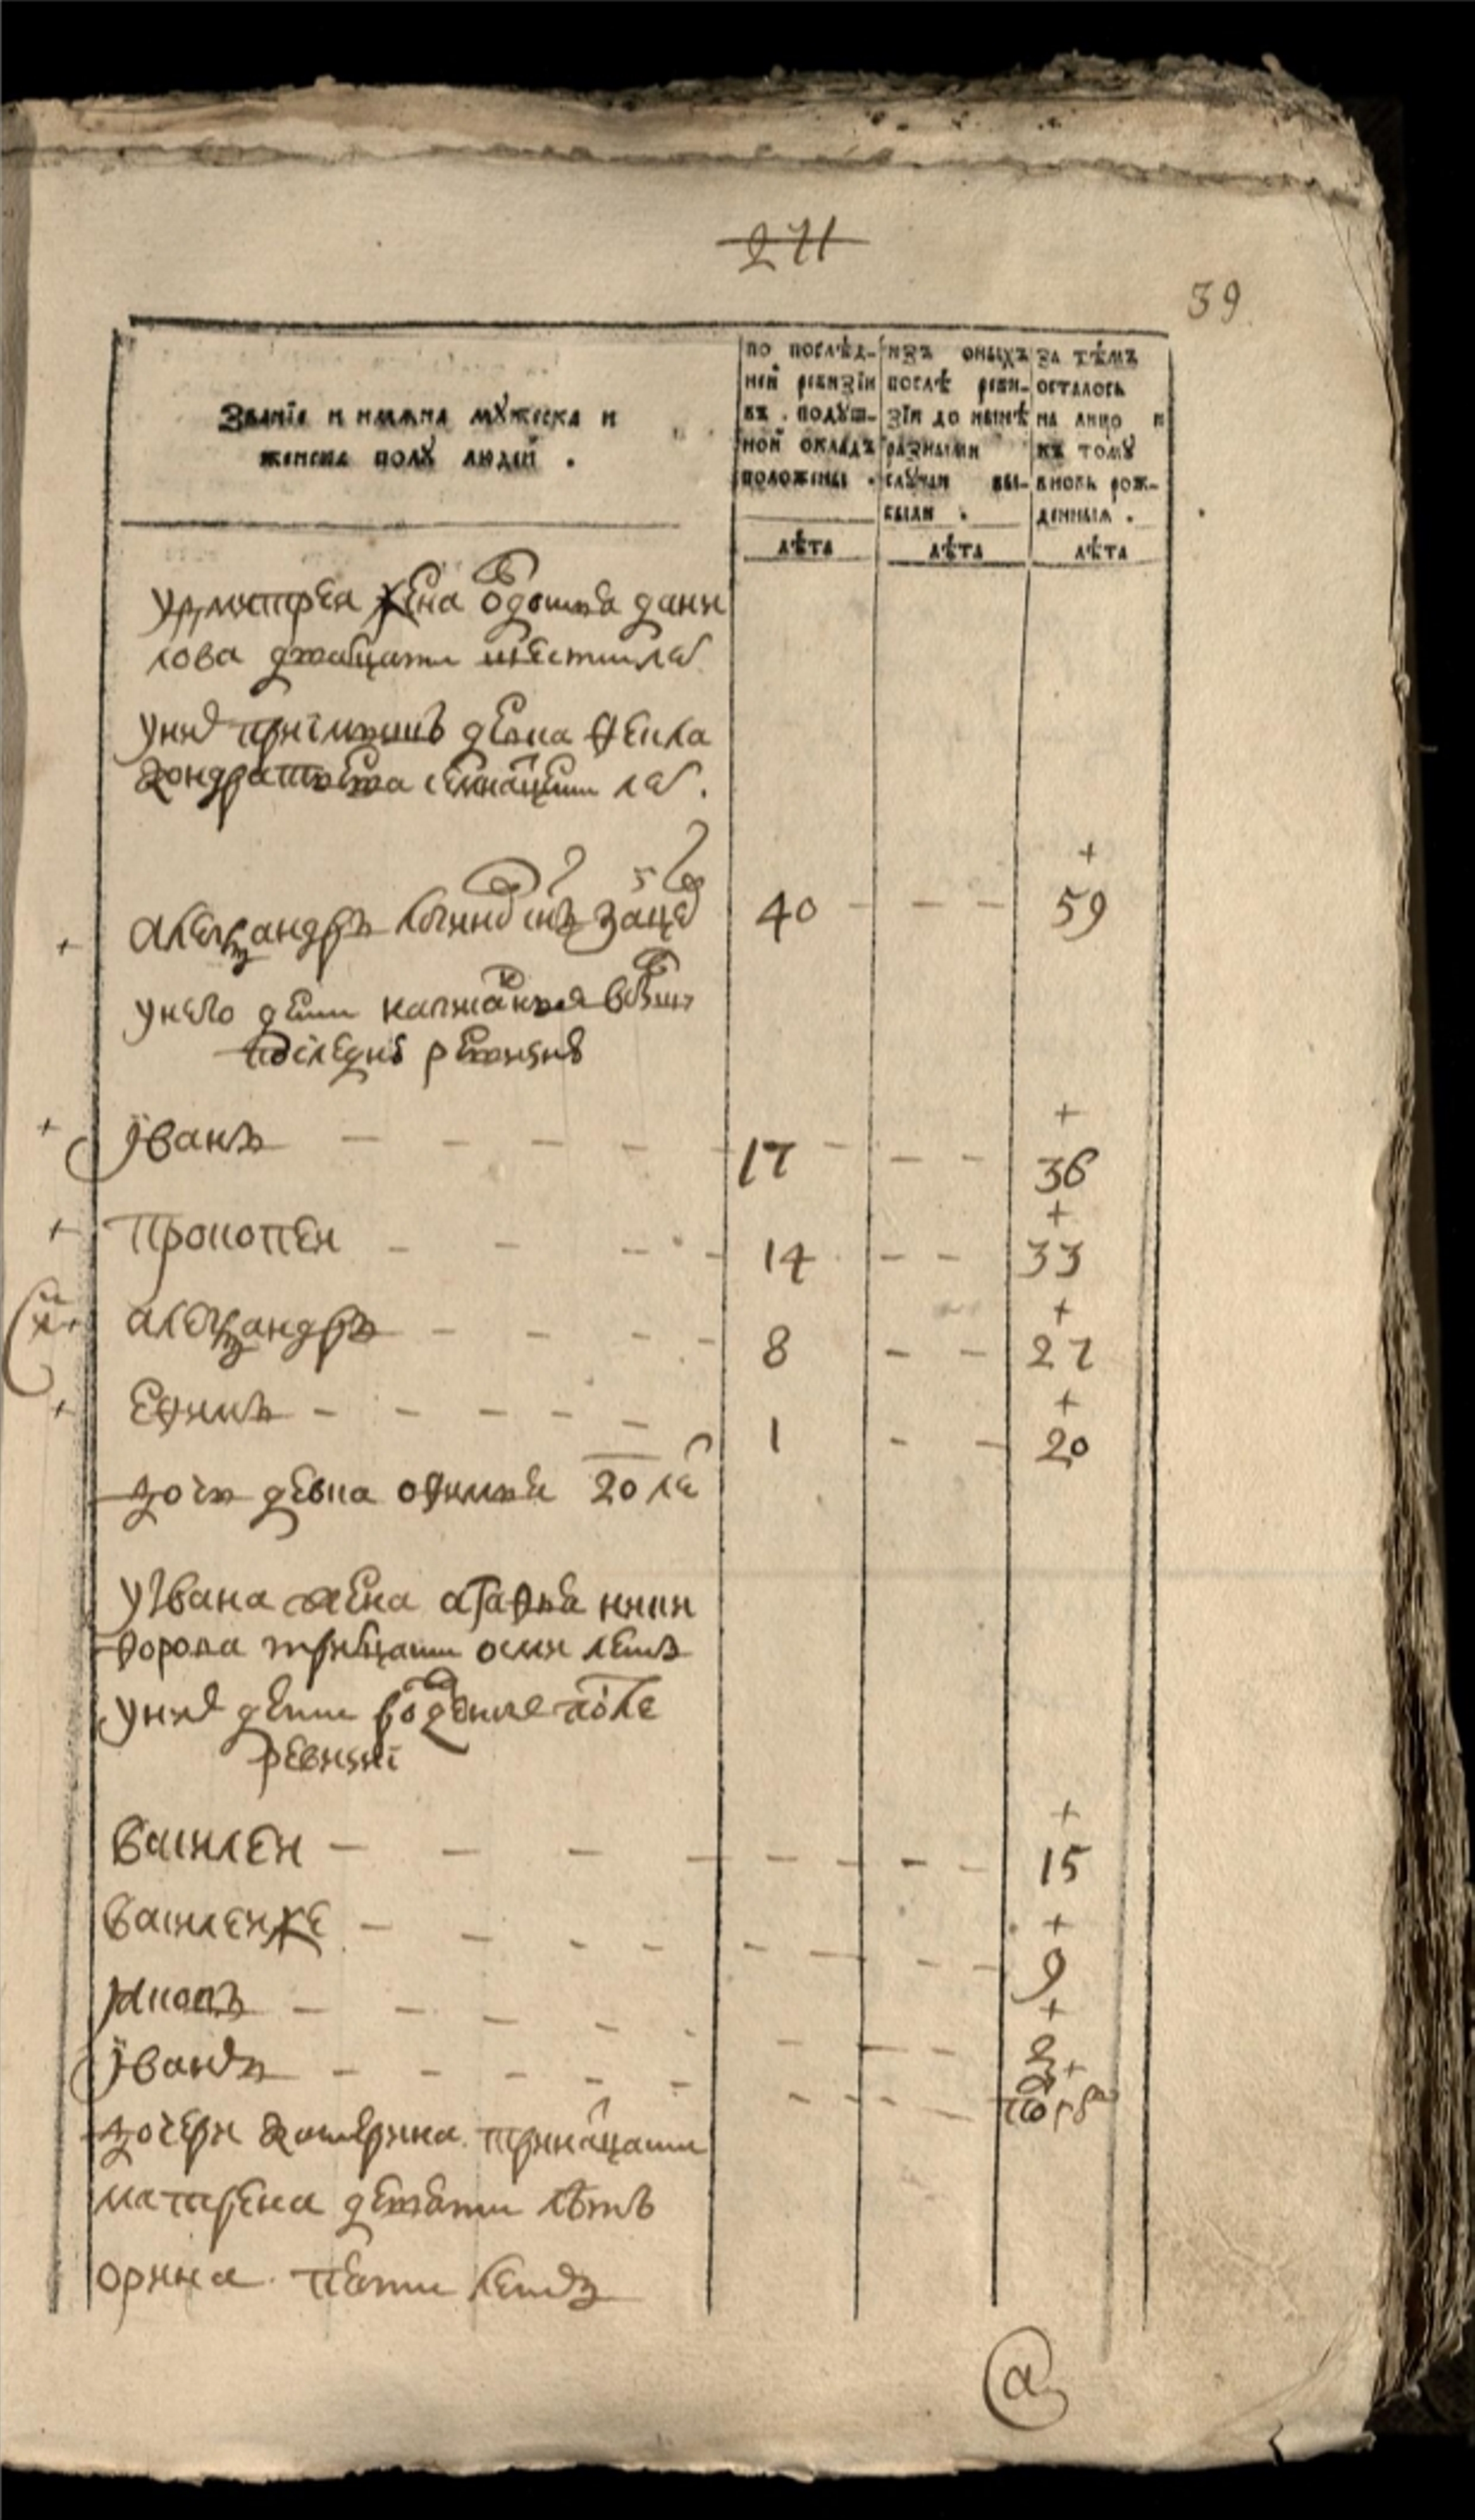 271
39
Званїе и имяна мꙋжеска и
женска полꙋ людей .
по послѣд-
ней ревизїи
въ подꙋш-
ной окладъ
положены .
изъ оныхъ
послѣ реви-
зїи до нынѣ
разными
слꙋчаи вы-
были .
за тѣмъ
осталось
на лицо и
къ томꙋ
вновь рож-
денныя .
лѣта лѣта лѣта
жена Овдотья Дани
лова дватцати шести лет
у них приимышъ девка Фекла
Кондратьева семнатцети лет .
Александръ сынъ 40 59
у него дети написанныя
последней ревизие
Їванъ 17 36
Прокопеи 14 33
Александръ 8 27
Ефимъ 1 20
дочь девка Офимья 20 ле
у Ївана жена Агафья Ники
форова тритцати осми летъ
у них дети рожденые после
ревизиї
Василеи 15
Василеиже 9
Їванъ
дочери Катерина тринатцати
Матрена девети летъ
Орина пети летъ